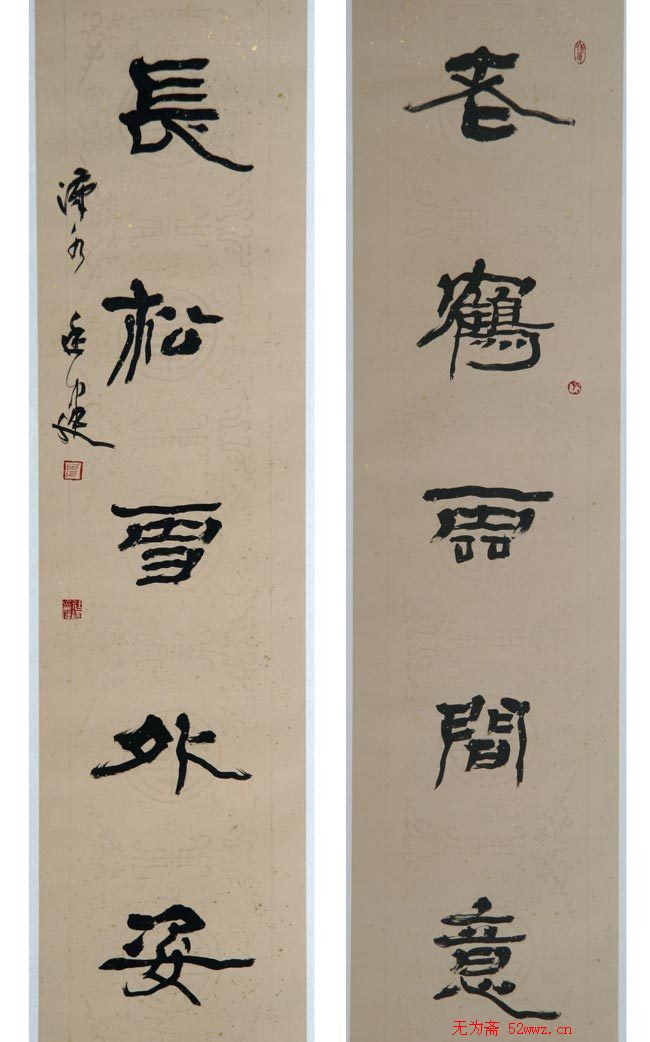 老鶴雲間意
長松雪外姿
无为斋 52wwz.cn